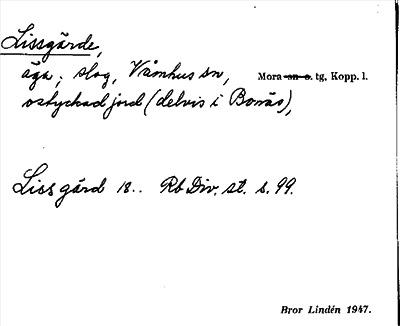 Lissgärde,
äga, slog, Våmhus sn, Mora sn o. tg, Kopp. l.
ostyckad jord (delvis i Bonäs),
Liss gärd 18.. Rb Div. st. s. 99.
Bror Lindén 1947.